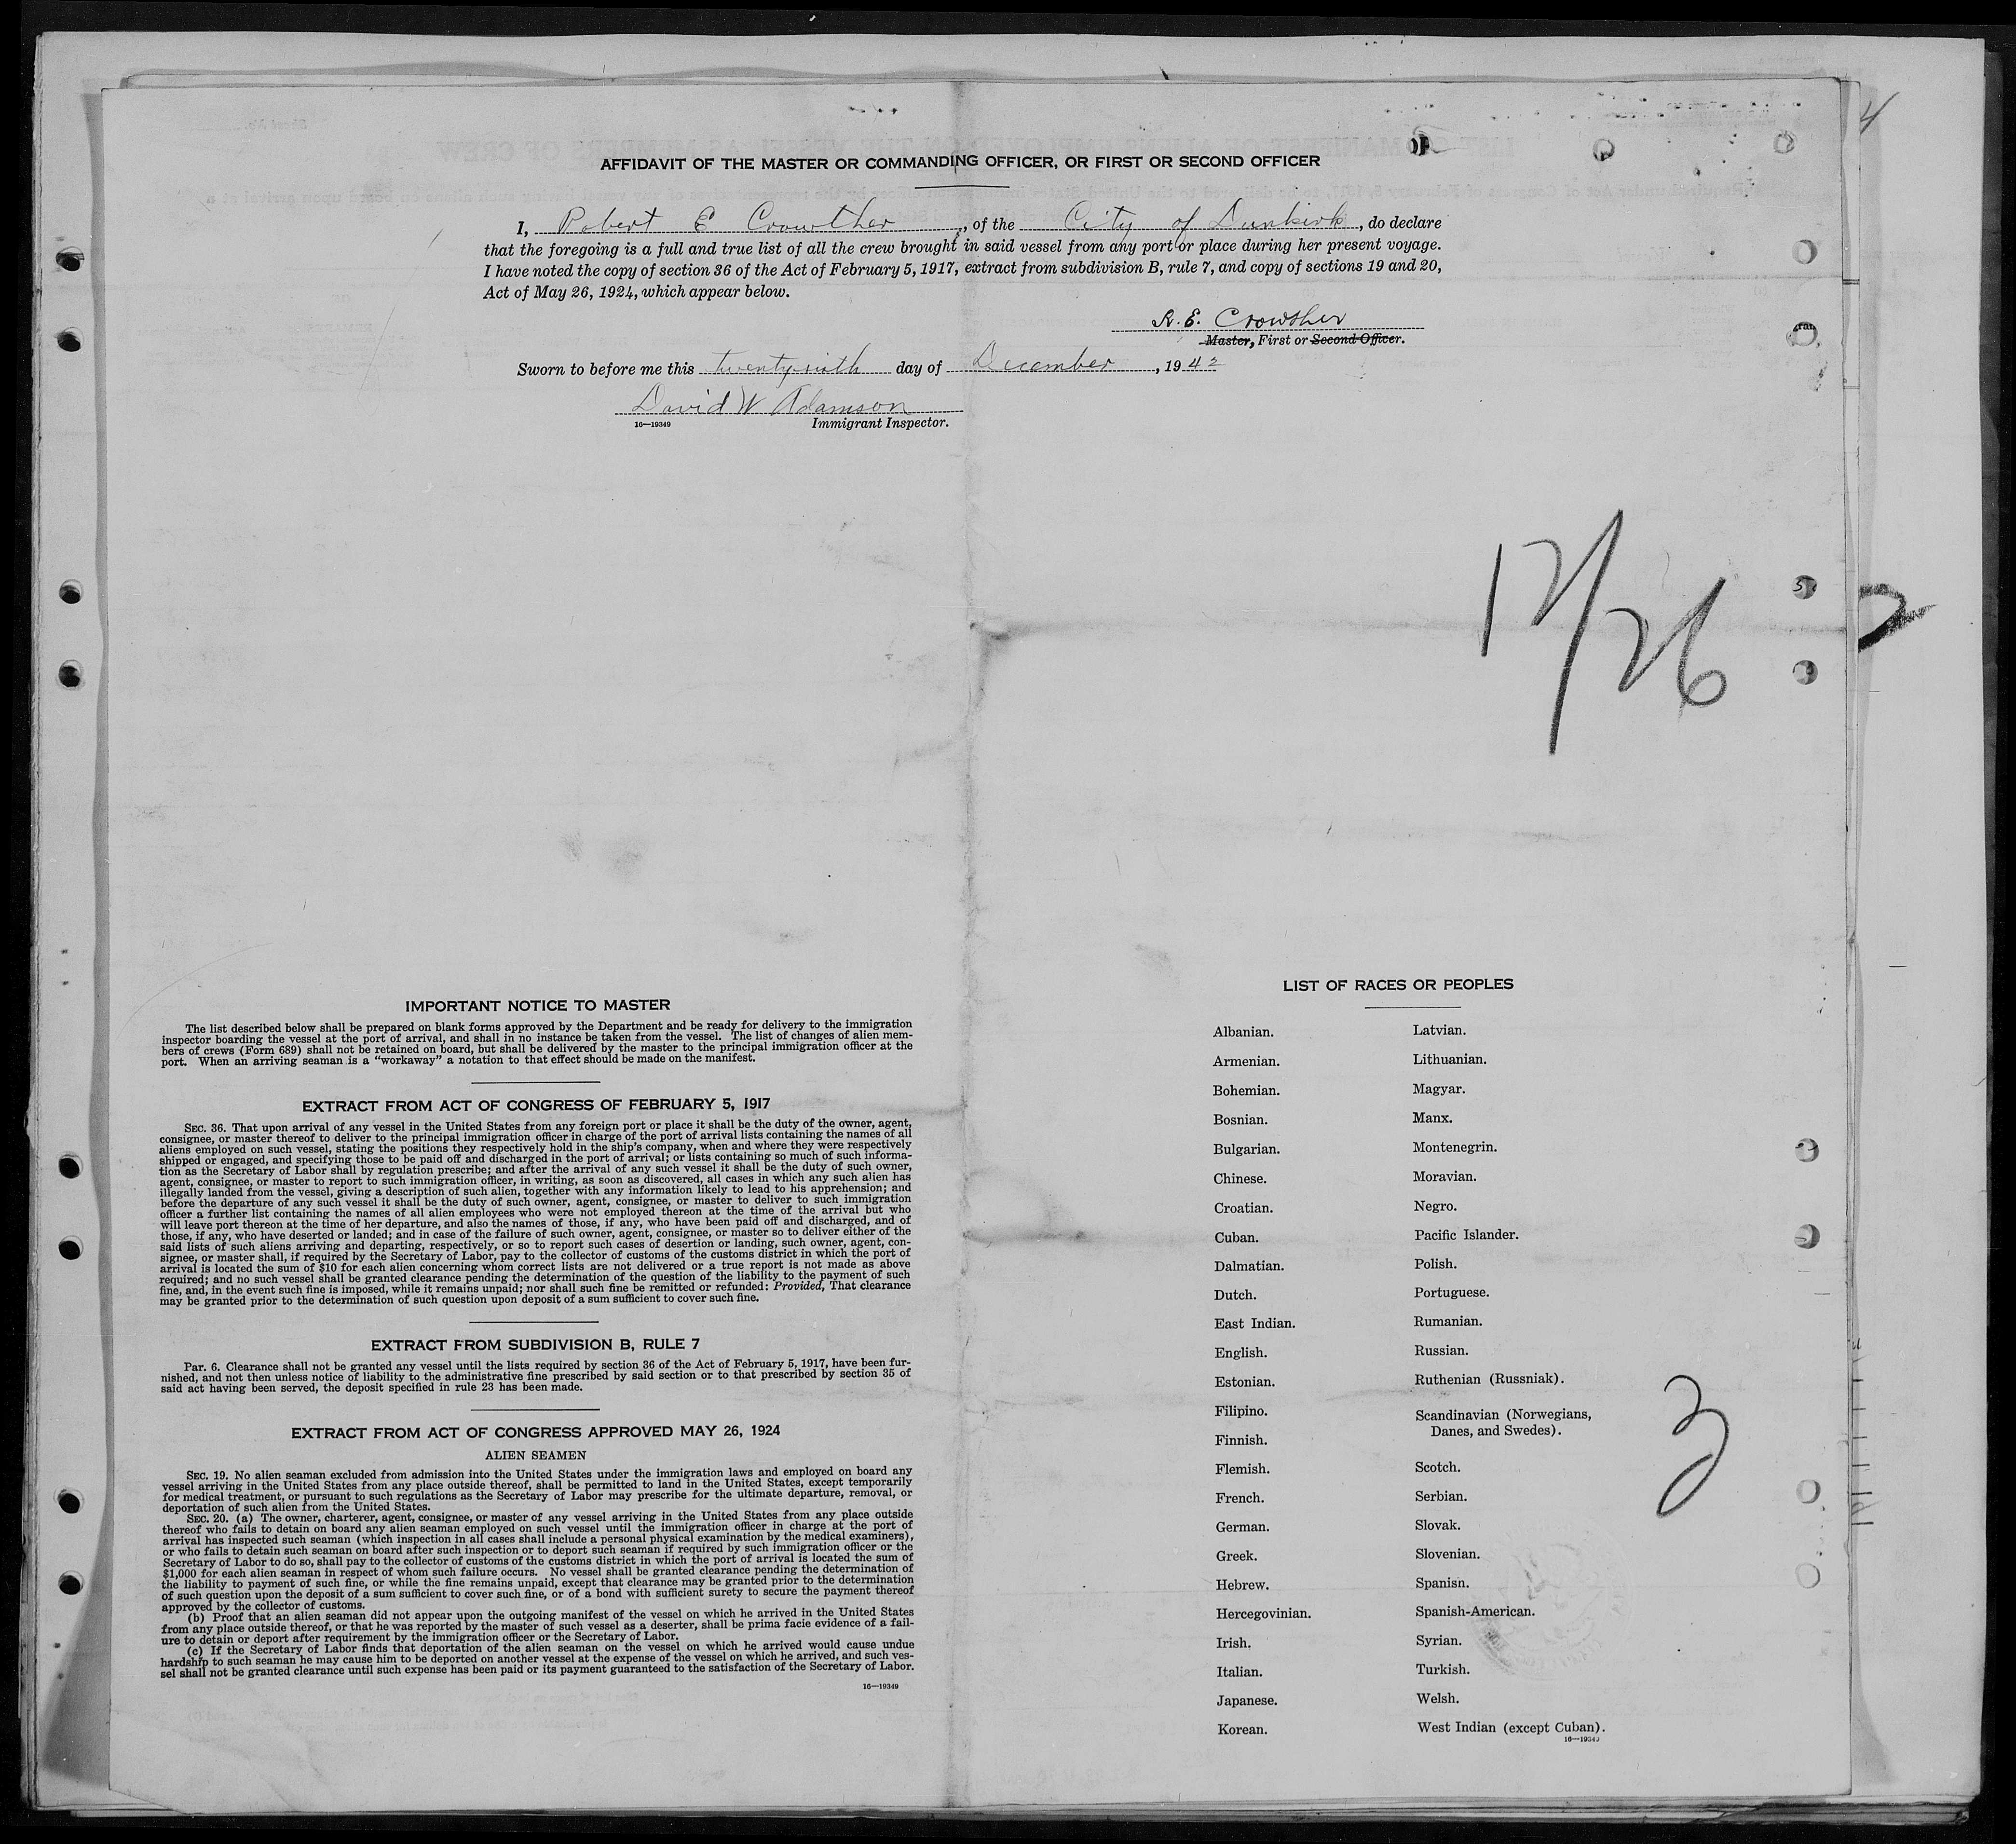 AFFIDAVIT OF THE MASTER OR COMMANDING OFFICER, OR FIRST OR SECOND OFFICER
I, Robert E Crowther, of the City of Dunkirk, do declare
that the foregoing is a full and true list of all the crew brought in said vessel from any port or place during her present voyage.
I have noted the copy of section 36 of the Act of February 5, 1917, extract from subdivision B, rule 7, and copy of sections 19 and 20,
Act of May 26, 1924, which appear below.
R. E. Crowther
Master, First or Second Officer.
Sworn to before me this twentysixth day of December, 1942
David W Adamson
16—19349 Immigrant Inspector.
12/26
IMPORTANT NOTICE TO MASTER
The list described below shall be prepared on blank forms approved by the Department and be ready for delivery to the immigration
inspector boarding the vessel at the port of arrival, and shall in no instance be taken from the vessel. The list of changes of alien mem-
bers of crews (Form 689) shall not be retained on board, but shall be delivered by the master to the principal immigration officer at the
port. When an arriving seaman is a "workaway" a notation to that effect should be made on the manifest.
EXTRACT FROM ACT OF CONGRESS OF FEBRUARY 5, 1917
SEC. 36. That upon arrival of any vessel in the United States from any foreign port or place it shall be the duty of the owner, agent,
consignee, or master thereof to deliver to the principal immigration officer in charge of the port of arrival lists containing the names of all
aliens employed on such vessel, stating the positions they respectively hold in the ship's company, when and where they were respectively
shipped or engaged, and specifying those to be paid off and discharged in the port of arrival; or lists containing so much of such informa-
tion as the Secretary of Labor shall by regulation prescribe; and after the arrival of any such vessel it shall be the duty of such owner,
agent, consignee, or master to report to such immigration officer, in writing, as soon as discovered, all cases in which any such alien has
illegally landed from the vessel, giving a description of such alien, together with any information likely to lead to his apprehension; and
before the departure of any such vessel it shall be the duty of such owner, agent, consignee, or master to deliver to such immigration
officer a further list containing the names of all alien employees who were not employed thereon at the time of the arrival but who
will leave port thereon at the time of her departure, and also the names of those, if any, who have been paid off and discharged, and of
those, if any, who have deserted or landed; and in case of the failure of such owner, agent, consignee, or master so to deliver either of the
said lists of such aliens arriving and departing, respectively, or so to report such cases of desertion or landing, such owner, agent, con-
signee, or master shall, if required by the Secretary of Labor, pay to the collector of customs of the customs district in which the port of
arrival is located the sum of $10 for each alien concerning whom correct lists are not delivered or a true report is not made as above
required; and no such vessel shall be granted clearance pending the determination of the question of the liability to the payment of such
fine, and, in the event such fine is imposed, while it remains unpaid; nor shall such fine be remitted or refunded: Provided, That clearance
may be granted prior to the determination of such question upon deposit of a sum sufficient to cover such fine.
EXTRACT FROM SUBDIVISION B, RULE 7
Par. 6. Clearance shall not be granted any vessel until the lists required by section 36 of the Act of February 5, 1917, have been fur-
nished, and not then unless notice of liability to the administrative fine prescribed by said section or to that prescribed by section 35 of
said act having been served, the deposit specified in rule 23 has been made.
EXTRACT FROM ACT OF CONGRESS APPROVED MAY 26, 1924
ALIEN SEAMEN
SEC. 19. No alien seaman excluded from admission into the United States under the immigration laws and employed on board any
vessel arriving in the United States from any place outside thereof, shall be permitted to land in the United States, except temporarily
for medical treatment, or pursuant to such regulations as the Secretary of Labor may prescribe for the ultimate departure, removal, or
deportation of such alien from the United States.
SEC. 20. (a) The owner, charterer, agent, consignee, or master of any vessel arriving in the United States from any place outside
thereof who fails to detain on board any alien seaman employed on such vessel until the immigration officer in charge at the port of
arrival has inspected such seaman (which inspection in all cases shall include a personal physical examination by the medical examiners),
or who fails to detain such seaman on board after such inspection or to deport such seaman if required by such immigration officer or the
Secretary of Labor to do so, shall pay to the collector of customs of the customs district in which the port of arrival is located the sum of
$1,000 for each alien seaman in respect of whom such failure occurs. No vessel shall be granted clearance pending the determination of
the liability to payment of such fine, or while the fine remains unpaid, except that clearance may be granted prior to the determination
of such question upon the deposit of a sum sufficient to cover such fine, or of a bond with sufficient surety to secure the payment thereof
approved by the collector of customs.
(b) Proof that an alien seaman did not appear upon the outgoing manifest of the vessel on which he arrived in the United States
from any place outside thereof, or that he was reported by the master of such vessel as a deserter, shall be prima facie evidence of a fail-
ure to detain or deport after requirement by the immigration officer or the Secretary of Labor.
(c) If the Secretary of Labor finds that deportation of the alien seaman on the vessel on which he arrived would cause undue
hardship to such seaman he may cause him to be deported on another vessel at the expense of the vessel on which he arrived, and such ves-
sel shall not be granted clearance until such expense has been paid or its payment guaranteed to the satisfaction of the Secretary of Labor.
16—19349
LIST OF RACES OR PEOPLES
Albanian.
Armenian.
Bohemian.
Bosnian.
Bulgarian.
Chinese.
Croatian.
Cuban.
Dalmatian.
Dutch.
East Indian.
English.
Estonian.
Filipino.
Finnish.
Flemish.
French.
German.
Greek.
Hebrew.
Hercegovinian.
Irish.
Italian.
Japanese.
Korean.
Latvian.
Lithuanian.
Magyar.
Manx.
Montenegrin.
Moravian.
Negro.
Pacific Islander.
Polish.
Portuguese.
Rumanian.
Russian.
Ruthenian (Russniak).
Scandinavian (Norwegians,
Danes, and Swedes).
Scotch.
Serbian.
Slovak.
Slovenian.
Spanish.
Spanish-American.
Syrian.
Turkish.
Welsh.
West Indian (except Cuban).
16—19349
3